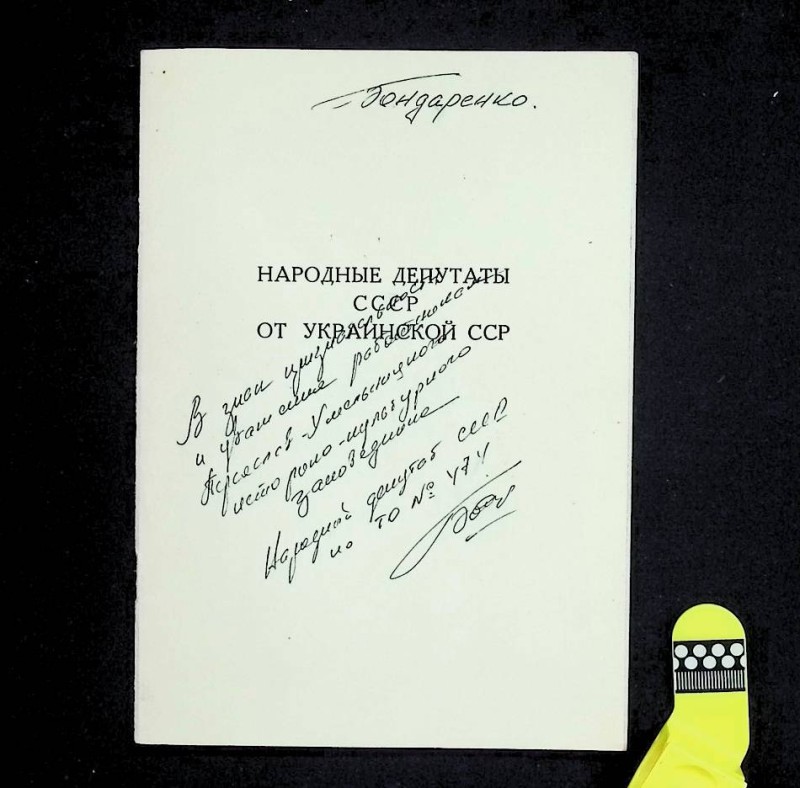 Бондаренко.
НАРОДНЫЕ ДЕПУТАТЫ
СССР
ОТ УКРАИНСКОЙ ССР
В знак признательности
и уважения работникам
Переяслав-Хмельницкого
историко-культурного
заповедника
Народный депутат СССР
по ТО № 474